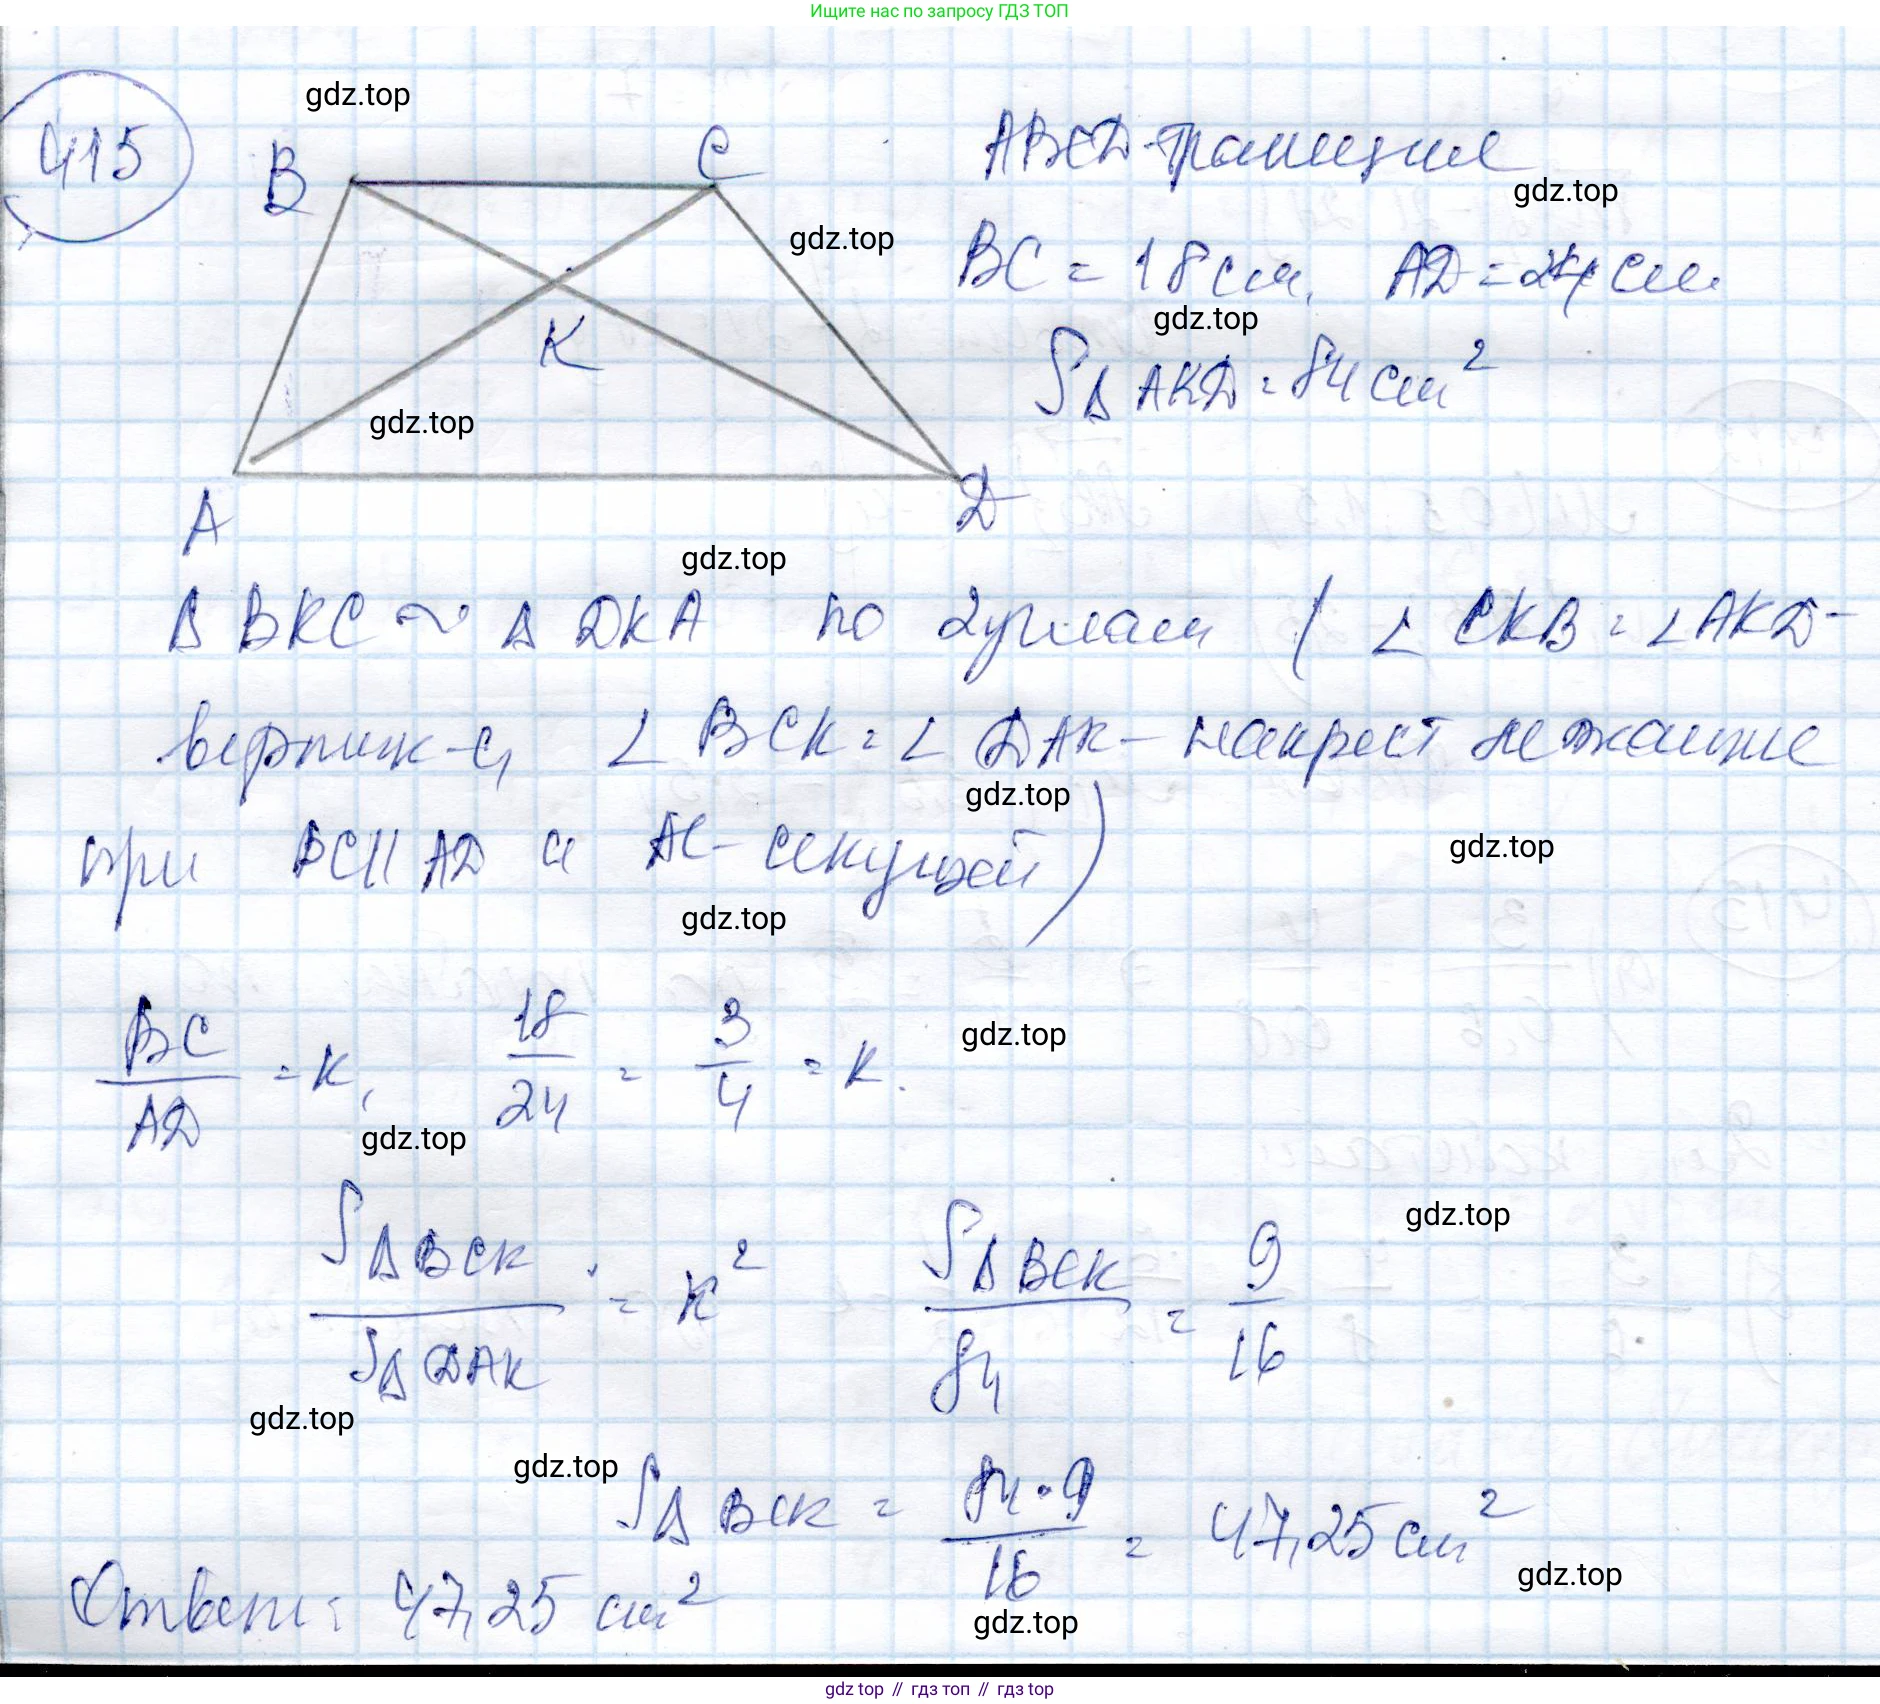 Ищите нас по запросу ГДЗ ТОП
415
gdz.top
B
C
ABCD - трапеция
gdz.top
gdz.top
BC = 18 см, AD = 24 см
gdz.top
K
S△AKD = 84 см²
gdz.top
A
D
gdz.top
△ BKC ~ △ DKA по 2 углам ( ∠ CKB = ∠ AKD -
вертик-е, ∠ BCK = ∠ DAK - накрест лежащие
gdz.top
при BC || AD и AC - секущей)
gdz.top
gdz.top
BC/AD = K, 18/24 = 3/4 = K.
gdz.top
gdz.top
S△BCK / S△DAK = K² S△BCK / 84 = 9/16
gdz.top
gdz.top
gdz.top
S△BCK = 84·9/16 = 47,25 см²
gdz.top
Ответ: 47,25 см²
gdz.top
gdz top // гдз топ // гдз top